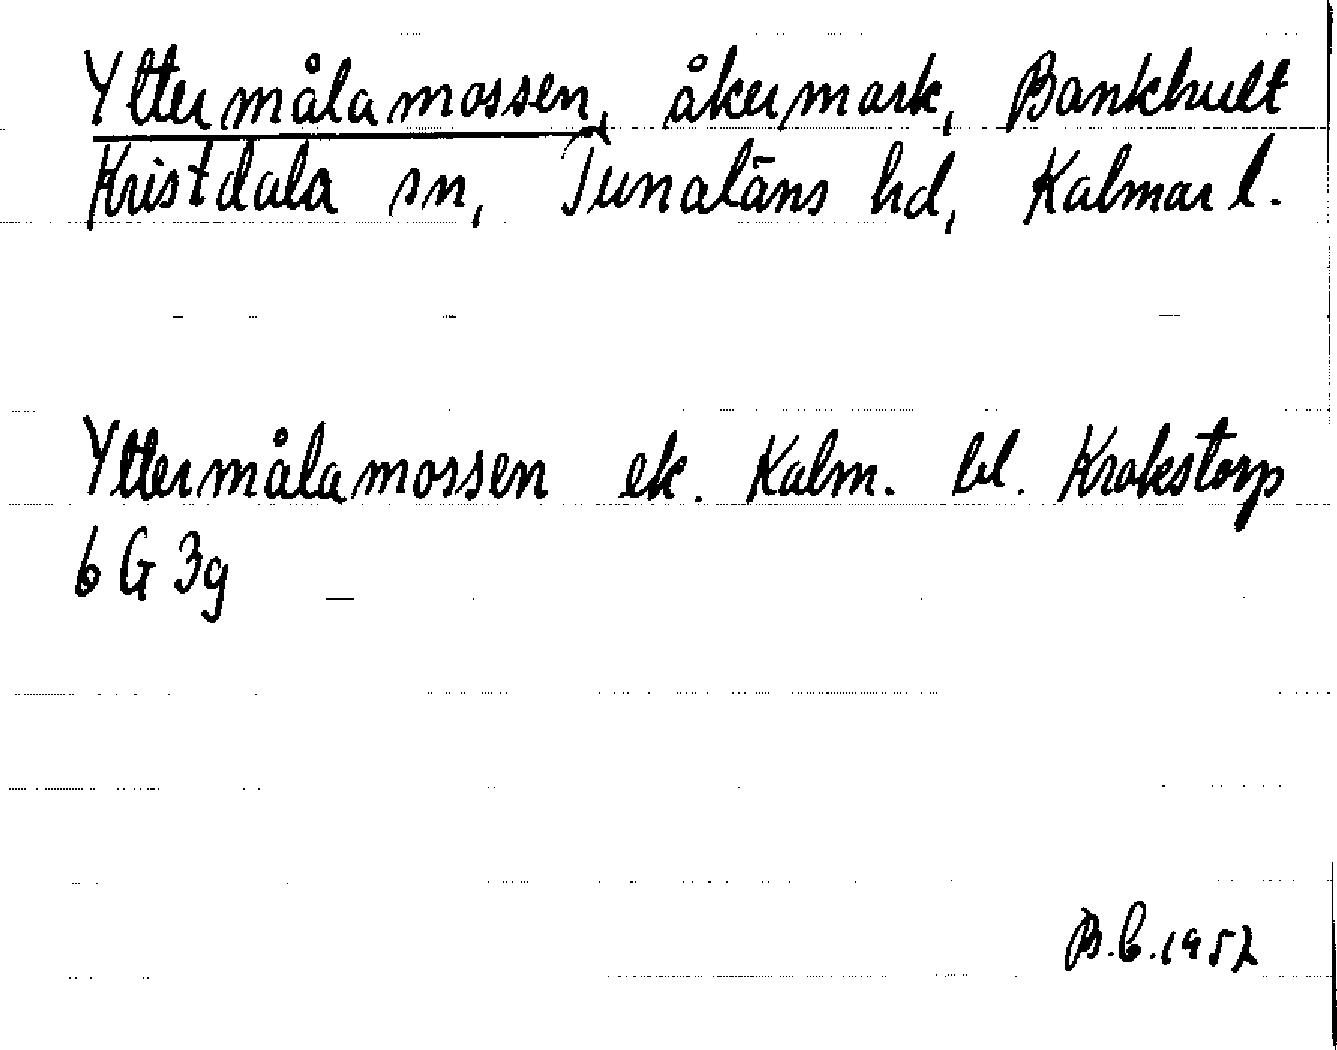 Yttermålamossen, åkermark, Bankhult
Kristdala sn, Tunaläns hd, Kalmar l.
Yttermålamossen ek. Kalm. bl. Krokstorp
6 G 3g
B.b.1952